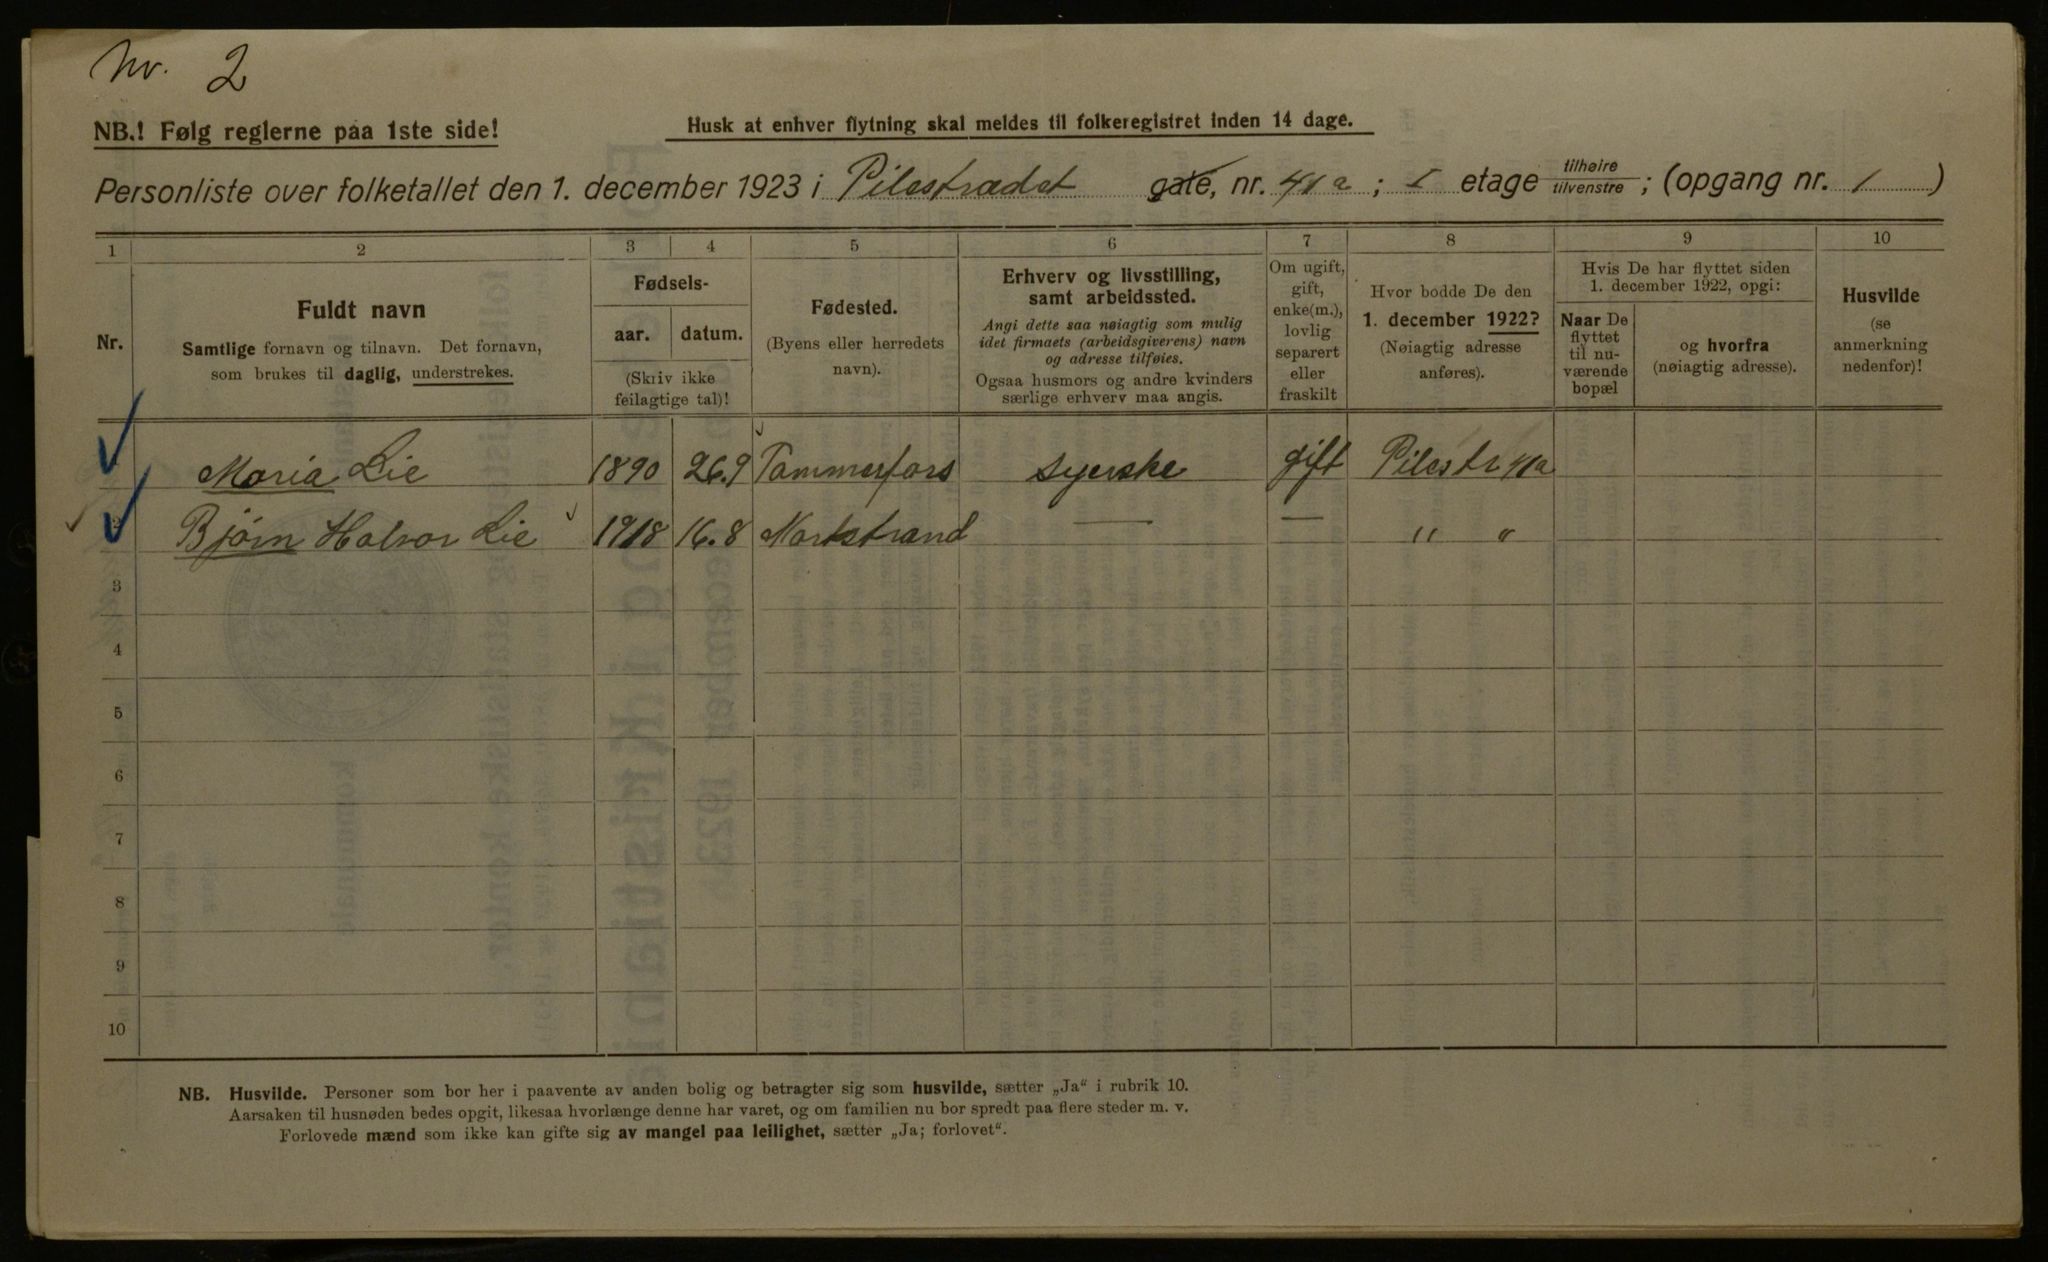 Nr. 2
NB.! Følg reglerne paa 1ste side!
Husk at enhver flytning skal meldes til folkeregistret inden 14 dage.
Personliste over folketallet den 1. december 1923 i Pilestrædet gate, nr. 41a ; I etage tilhøire/tilvenstre ; (opgang nr. 1 )
1 2 3 4 5 6 7 8 9 10
Nr.
Fuldt navn
Samtlige fornavn og tilnavn. Det fornavn,
som brukes til daglig, understrekes.
Fødsels-
aar. datum.
(Skriv ikke
feilagtige tal)!
Fødested.
(Byens eller herredets
navn).
Erhverv og livsstilling,
samt arbeidssted.
Angi dette saa nøiagtig som mulig
idet firmaets (arbeidsgiverens) navn
og adresse tilføies.
Ogsaa husmors og andre kvinders
særlige erhverv maa angis.
Om ugift,
gift,
enke(m.),
lovlig
separert
eller
fraskilt
Hvor bodde De den
1. december 1922?
(Nøiagtig adresse
anføres).
Hvis De har flyttet siden
1. december 1922, opgi:
Naar De
flyttet
til nu-
værende
bopæl
og hvorfra
(nøiagtig adresse).
Husvilde
(se
anmerkning
nedenfor)!
Maria Lie 1890 26.9 Tammerfors syerske gift Pilestr 41a
2 Bjørn Halvor Lie 1918 16.8 Nordstrand — — " "
3
4
5
6
7
8
9
10
NB. Husvilde. Personer som bor her i paavente av anden bolig og betragter sig som husvilde, sætter „Ja" i rubrik 10.
Aarsaken til husnøden bedes opgit, likesaa hvorlænge denne har varet, og om familien nu bor spredt paa flere steder m. v.
Forlovede mænd som ikke kan gifte sig av mangel paa leilighet, sætter „Ja; forlovet".